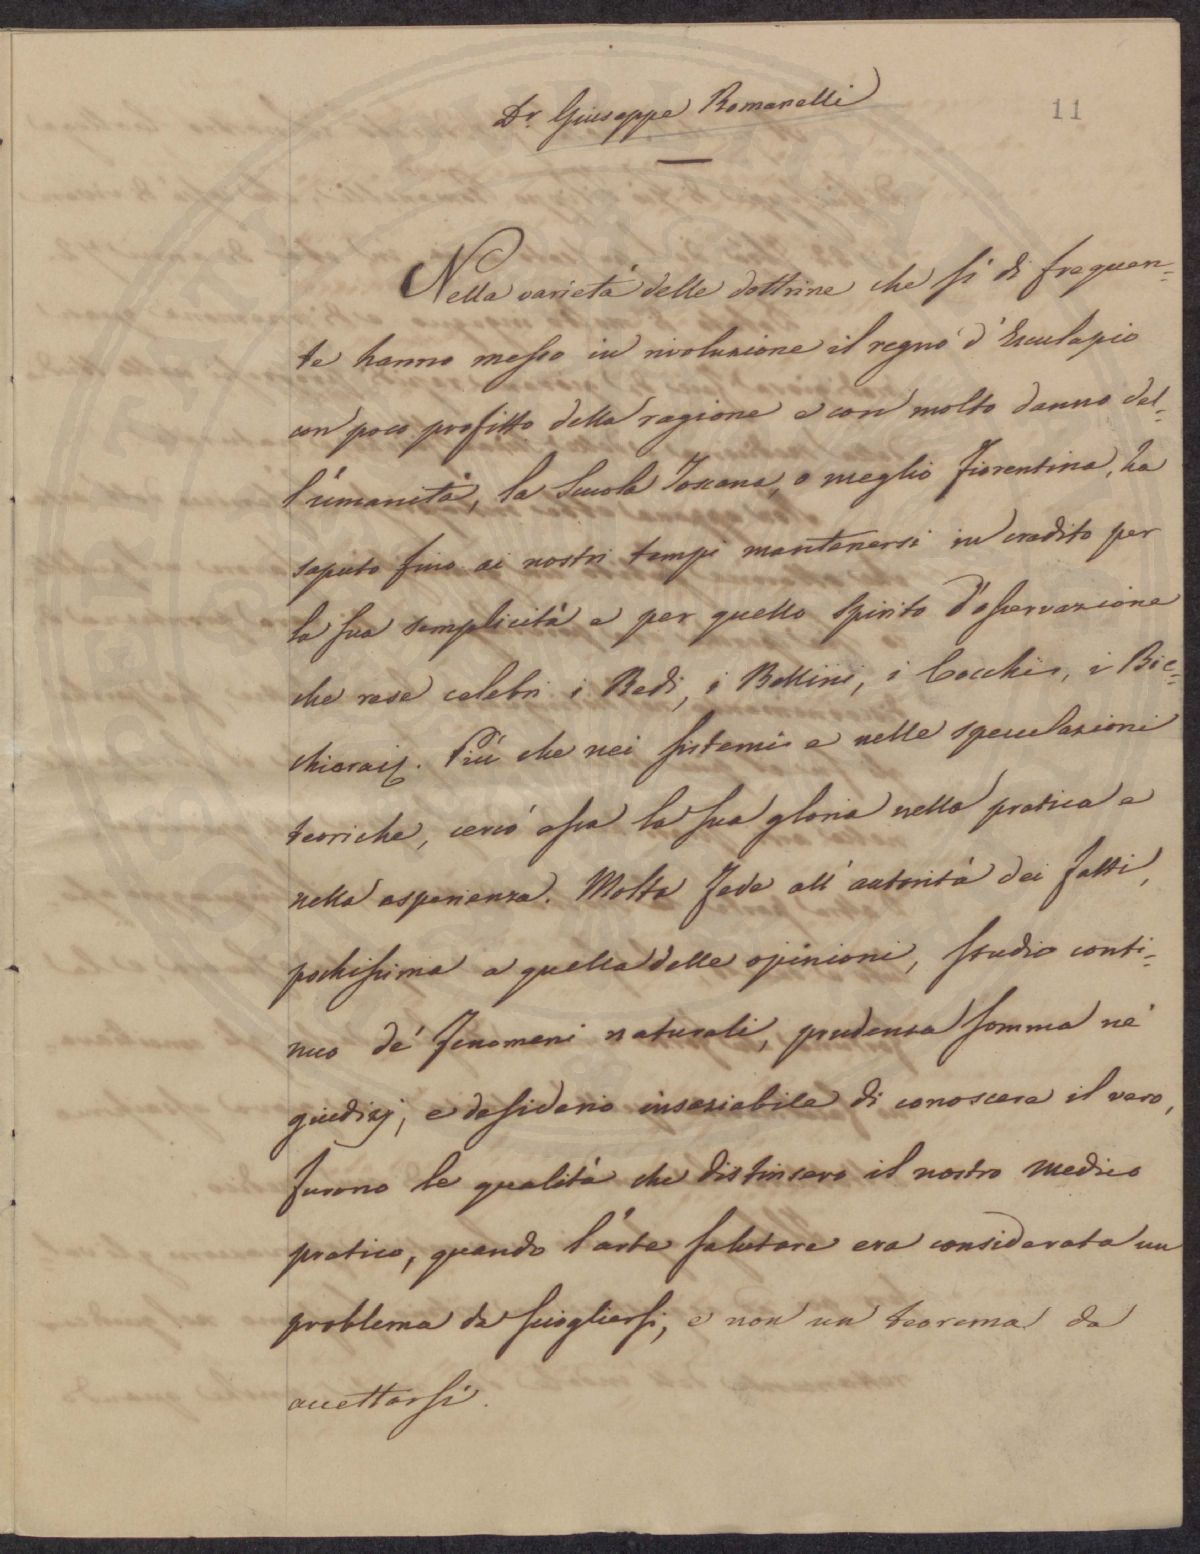 Dr. Giuseppe Romanelli
11
Nella varietà delle dottrine che sì di frequen-
te hanno messo in rivoluzione il regno d'Esculapio
con poco profitto della ragione e con molto danno del-
l'umanità, la Scuola Toscana, o meglio Fiorentina, ha
saputo fino ai nostri tempi mantenersi in credito per
la sua semplicità e per quello spirito d'osservazione
che rese celebri i Redi, i Bellini, i Cocchi, i Bic-
chierai. Più che nei sistemi e nelle speculazioni
teoriche, cercò essa la sua gloria nella pratica e
nella esperienza. Molta fede all'autorità dei fatti,
pochissima a quella delle opinioni, studio conti-
nuo de' fenomeni naturali, prudenza somma ne'
giudizj, e desiderio insaziabile di conoscere il vero,
furono le qualità che distinsero il nostro medico
pratico, quando l'arte salutare era considerata un
problema da sciogliersi, e non un teorema da
accettarsi.